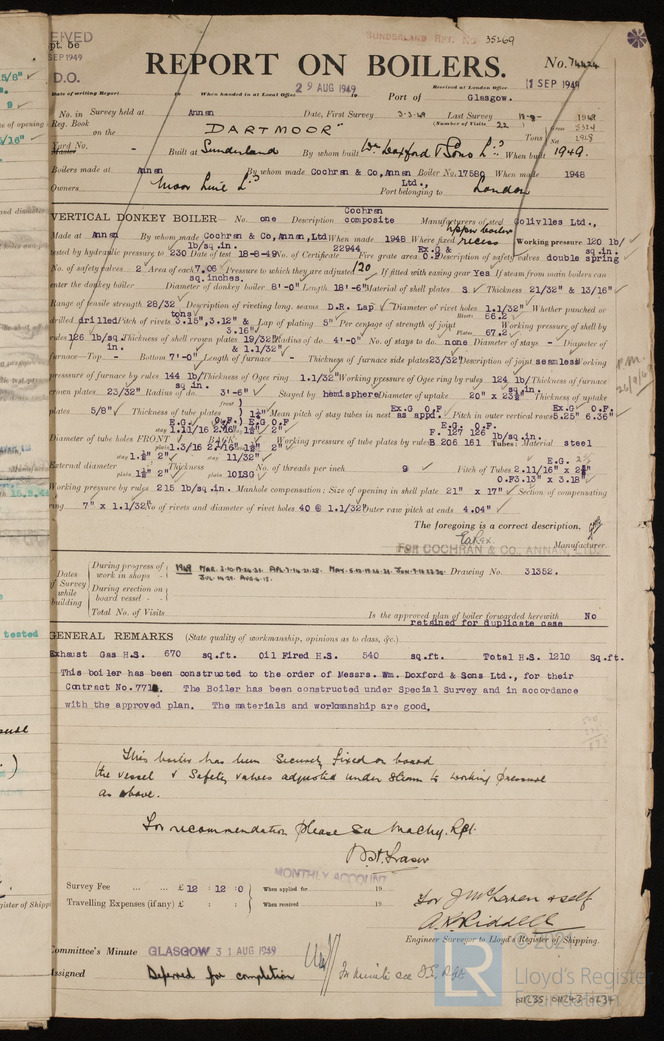 SUNDERLAND RPT. No 35269
SEP 1949
D.O.
REPORT ON BOILERS.
No. 74424
29 AUG 1949
Received at London Office
1 SEP 1949
Date of writing Report
When handed in at Local Office
Port of Glasgow.
No. in Survey held at Annan Date, First Survey 3-3-49 Last Survey 1949
Reg. Book
(Number of Visits 22
on the "DARTMOOR" Tons
Built at Sunderland By whom built Wm Doxford & Sons Ld. When built 1949.
Boilers made at Annan By whom made Cochran & Co, Annan Ltd., Boiler No. 17580 When made 1948
Owners Moor Line Ld. Port belonging to London
VERTICAL DONKEY BOILER— No. one Description Cochran composite Manufacturers of steel Colvilles Ltd.,
Made at Annan By whom made Cochran & Co, Annan, Ltd When made 1948 Where fixed upper boiler recess Working pressure 120 lb/sq.in.
tested by hydraulic pressure to 230 lb/sq.in. Date of test 18-8-49 No. of Certificate 22944 Fire grate area Ex.G & 0.F Description of safety valves double spring
No. of safety valves 2 Area of each 7.06 sq.inches. Pressure to which they are adjusted 120 If fitted with easing gear Yes If steam from main boilers can
enter the donkey boiler Diameter of donkey boiler 8'-0" Length 18'-6" Material of shell plates S Thickness 21/32" & 13/16"
Range of tensile strength 28/32 tons Description of riveting long. seams D.R. Lap Diameter of rivet holes 1.1/32" Whether punched or
drilled drilled Pitch of rivets 3.15", 3.12" & 3.16" Lap of plating 5" Per centage of strength of joint Rivets 66.2 Plates 67.2 Working pressure of shell by
rules 126 lb/sq.in. Thickness of shell crown plates 19/32" & 1.1/32" Radius of do. 4'-0" No. of stays to do. none Diameter of stays - Diameter of
furnace—Top - Bottom 7'-0" Length of furnace - Thickness of furnace side plates 23/32" Description of joint seamless Working
presssure of furnace by rules 144 lb/sq in. Thickness of Ogee ring 1.1/32" Working pressure of Ogee ring by rules 124 lb/sq.in. Thickness of furnace
crown plates 23/32" Radius of do. 3'-6" Stayed by hemisphere Diameter of uptake 20" x 23½" Thickness of uptake
plates 5/8" Thickness of tube plates front back Mean pitch of stay tubes in nest Ex.G O.F. as appd. Pitch in outer vertical rows Ex.G O.F. 5.25" 6.36"
Diameter of tube holes FRONT BACK Working pressure of tube plates by rules F. 127 126 B 206 161 lb/sq.in. Tubes: Material steel
External diameter stay 1.½" 2" plain 1½" 2" Thickness stay 11/32" plain 10LSG No. of threads per inch 9 Pitch of Tubes E.G. 2.11/16" x
O.F 3.13" x 3.18"
Working pressure by rules 215 lb/sq.in. Manhole compensation: Size of opening in shell plate 21" x 17" Section of compensating
ring 7" x 1.1/32" No of rivets and diameter of rivet holes 40 @ 1.1/32" Outer raw pitch at ends 4.04"
The foregoing is a correct description,
FOR COCHRAN & CO., ANNAN, LTD. Manufacturer
Dates of Survey while building
During progress of work in shops - - 1949 MAR. 3.10.17.24.31. APL. 7.14.21.28.
JUL. 14.29. AUG. 4.18.
Drawing No. 31352.
During erection on board vessel - -
Total No. of Visits
Is the approved plan of boiler forwarded herewith No
retained for duplicate case
GENERAL REMARKS (State quality of workmanship, opinions as to class, &c.)
Exhaust Gas H.S. 670 sq.ft. Oil Fired H.S. 540 sq.ft. Total H.S. 1210 Sq.ft.
This boiler has been constructed to the order of Messrs. Wm. Doxford & Sons Ltd., for their
Contract No. 771. The Boiler has been constructed under Special Survey and in accordance
with the approved plan. The materials and workmanship are good.
This boiler has been securely fixed on board
the vessel & safety valves adjusted under steam to working pressure
as above.
For recommendation please see Machy. Rpt.
Survey Fee ... ... £ 12 : 12 : 0 When applied for 19
MONTHLY ACCOUNT
Travelling Expenses (if any) £ : : When received 19
For J McLaren & self
A. Riddell
Engineer Surveyor to Lloyd's Register of Shipping.
Committee's Minute GLASGOW 31 AUG 1949
Assigned Deferred for completion
LR
© 2021
Lloyd's Register
Foundation